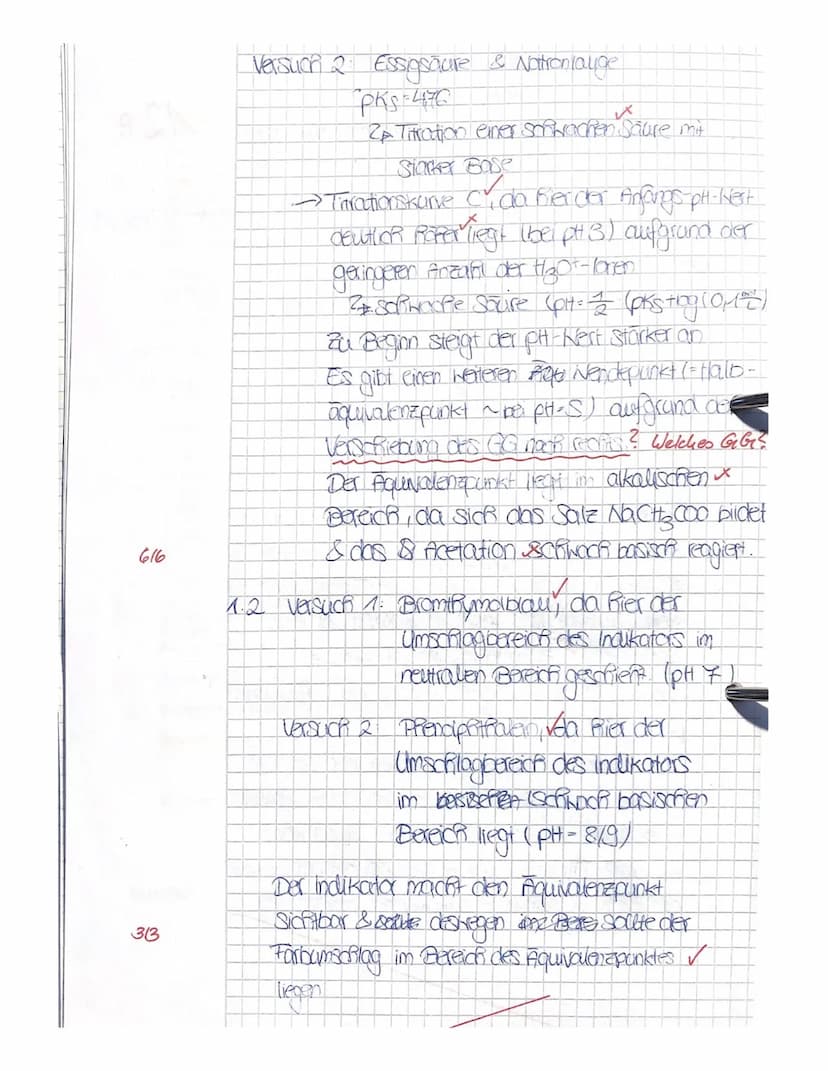 Versuch 2: Essigsäure & Natronlauge
pKs=4,76
→ Titration einer schwachen Säure mit
starker Base
→ Titrationskurve C, da hier der Anfangs-pH-Wert
deutlich höher liegt (bei pH 3) aufgrund der
geringeren Anzahl der H₃O⁺-Ionen
→ schwache Säure (pH = 1/2 (pKs + log (0,1
Zu Beginn steigt der pH-Wert stärker an
Es gibt einen weiteren Wendepunkt (= Halb-
äquivalenzpunkt ~ bei pH=5) aufgrund der
Verschiebung des GG nach rechts ? Welches GG?
Der Äquivalenzpunkt liegt im alkalischen
Bereich, da sich das Salz NaCH₃COO bildet
6/6 & das Acetation schwach basisch reagiert.
1.2 Versuch 1: Bromthymolblau, da hier der
Umschlagbereich des Indikators im
neutralen Bereich geschieht (pH 7)
Versuch 2: Phenolphthalein, da hier der
Umschlagbereich des Indikators
im schwach basischen
Bereich liegt (pH - 8/9)
Der Indikator macht den Äquivalenzpunkt
sichtbar & deshalb sollte der
3/3 Farbumschlag im Bereich des Äquivalenzpunktes
liegen